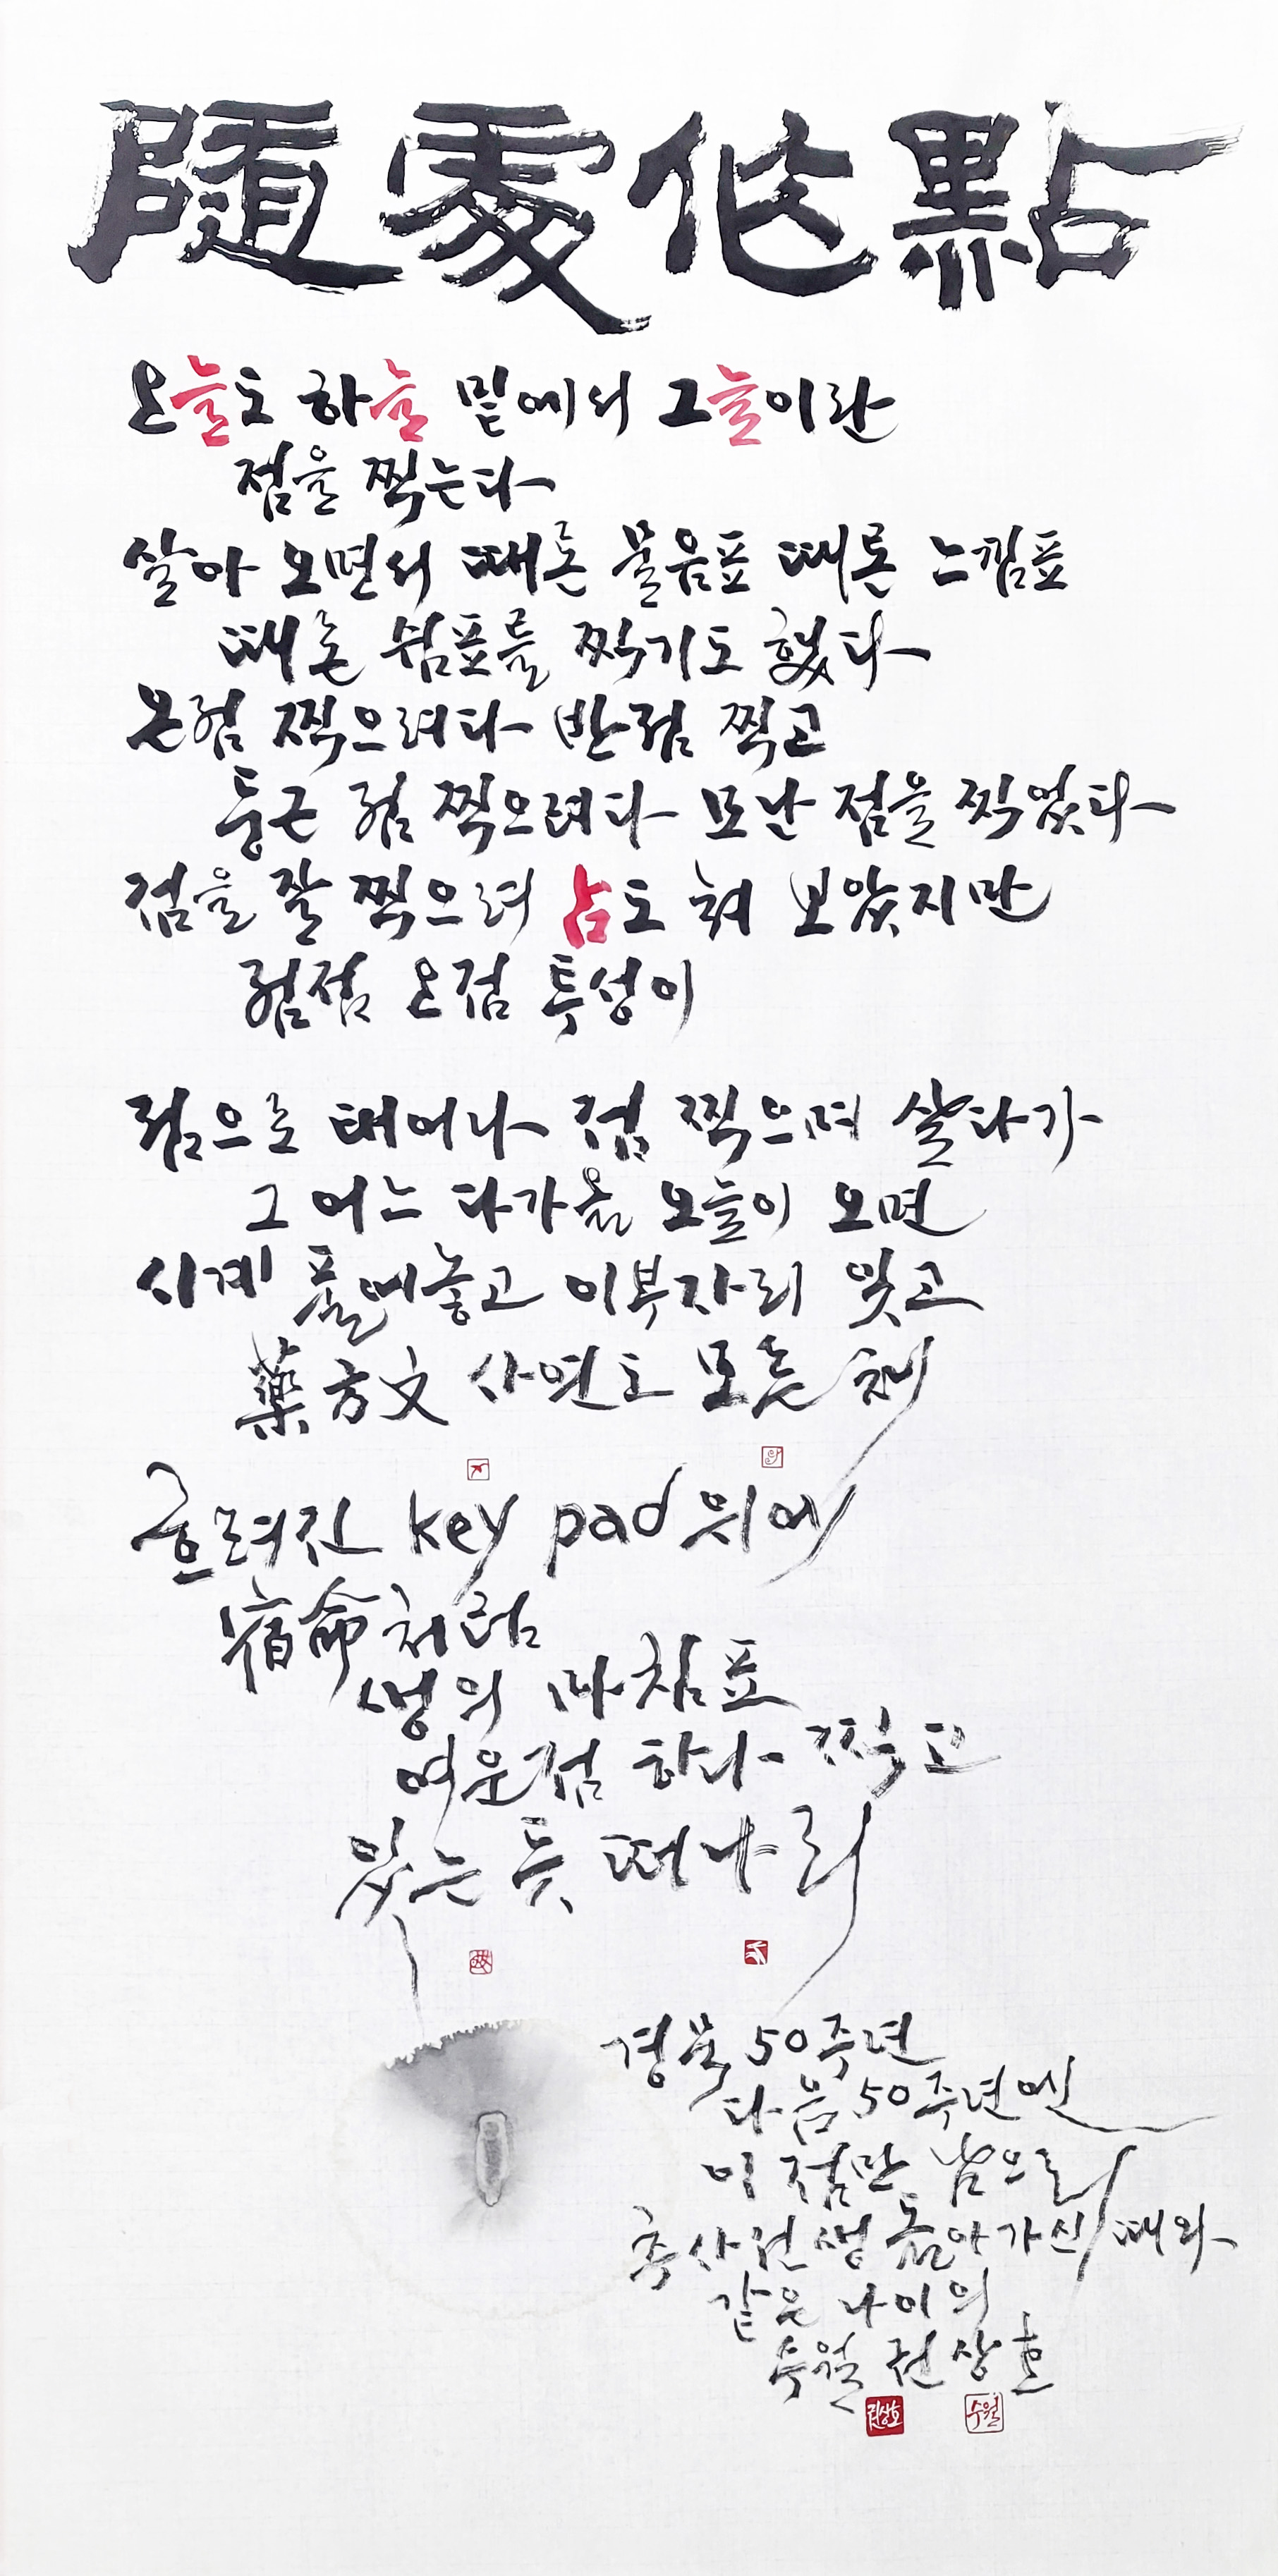 隨處作點
오늘도 하늘 밑에서 그늘이란
점을 찍는다
살아 오면서 때론 물음표 때론 느낌표
때론 쉼표를 찍기도 했다
온점 찍으려다 반점 찍고
둥근 점 찍으려다 모난 점을 찍었다
점을 잘 찍으려 占도 쳐 보았지만
점점 온점 투성이
점으로 태어나 점 찍으며 살다가
그 어느 다가올 오늘이 오면
시계 풀어놓고 이부자리 잊고
藥方文 사연도 모른 채
흐려진 key pad 위에
宿命처럼
생의 마침표
여운점 하나 찍고
잊는 듯 떠나리
경묵 50주년
다음 50주년엔
이 점만 남으리
추사선생 돌아가신 때와
같은 나이의
수월 권상호
권상호
수월